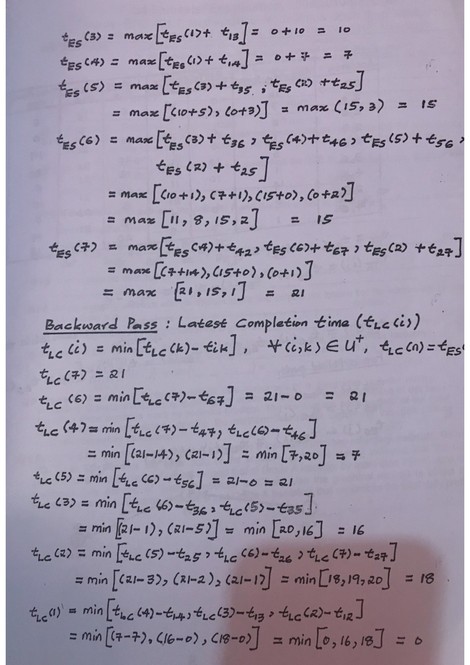 t_ES(3) = max[t_ES(1) + t_13] = 0+10 = 10
t_ES(4) = max[t_ES(1) + t_14] = 0+7 = 7
t_ES(5) = max[t_ES(3) + t_35, t_ES(2) + t_25]
= max[(10+5), (0+3)] = max(15,3) = 15
t_ES(6) = max[t_ES(3) + t_36, t_ES(4) + t_46, t_ES(5) + t_56,
t_ES(2) + t_25]
= max[(10+1), (7+1), (15+0), (0+2)]
= max[11, 8, 15, 2] = 15
t_ES(7) = max[t_ES(4) + t_42, t_ES(6) + t_67, t_ES(2) + t_27]
= max[(7+14), (15+0), (0+1)]
= max [21, 15, 1] = 21
Backward Pass : Latest Completion time (t_LC(i))
t_LC(i) = min[t_LC(k) - t_ik], ∀(i,k) ∈ U⁺, t_LC(n) = t_ES
t_LC(7) = 21
t_LC(6) = min[t_LC(7) - t_67] = 21-0 = 21
t_LC(4) = min[t_LC(7) - t_47, t_LC(6) - t_46]
= min[(21-14), (21-1)] = min[7,20] = 7
t_LC(5) = min[t_LC(6) - t_56] = 21-0 = 21
t_LC(3) = min[t_LC(6) - t_36, t_LC(5) - t_35]
= min[(21-1), (21-5)] = min[20,16] = 16
t_LC(2) = min[t_LC(5) - t_25, t_LC(6) - t_26, t_LC(7) - t_27]
= min[(21-3), (21-2), (21-1)] = min[18,19,20] = 18
t_LC(1) = min[t_LC(4) - t_14, t_LC(3) - t_13, t_LC(2) - t_12]
= min[(7-7), (16-0), (18-0)] = min[0,16,18] = 0